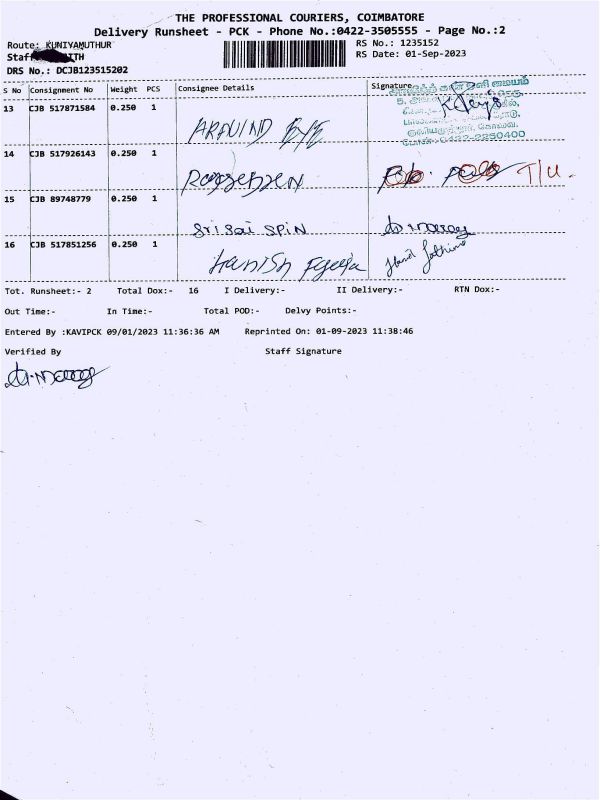 THE PROFESSIONAL COURIERS, COIMBATORE
Delivery Runsheet - PCK - Phone No.:0422-3505555 - Page No.:2
Route: KUNIYAMUTHUR
RS No.: 1235152
RS Date: 01-Sep-2023
DRS No.: DCJB123515202
S No Consignment No Weight PCS Consignee Details Signature
13 CJB 517871584 0.250 1 ARAVIND EYE
0422-2250400
14 CJB 517926143 0.250 1 T/U.
15 CJB 89748779 0.250 1 Sri Sai SPIN
16 CJB 517851256 0.250 1 Hanish
Tot. Runsheet:- 2 Total Dox:- 16 I Delivery:- II Delivery:- RTN Dox:-
Out Time:- In Time:- Total POD:- Delvy Points:-
Entered By :KAVIPCK 09/01/2023 11:36:36 AM Reprinted On: 01-09-2023 11:38:46
Verified By Staff Signature